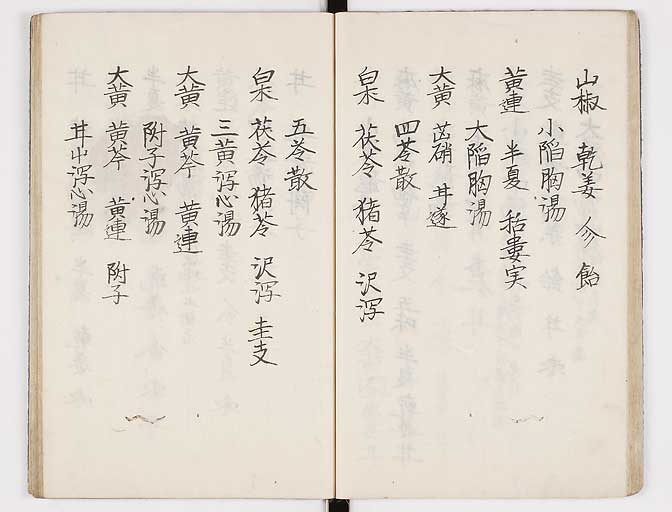 山椒 乾姜 今 飴
小陥胸湯
黄連 半夏 栝蔞実
大陥胸湯
大黄 芒硝 甘遂
四苓散
白朮 茯苓 猪苓 沢瀉
五苓散
白朮 茯苓 猪苓 沢瀉 圭支
三黄瀉心湯
大黄 黄芩 黄連
附子瀉心湯
大黄 黄芩 黄連 附子
甘中瀉心湯